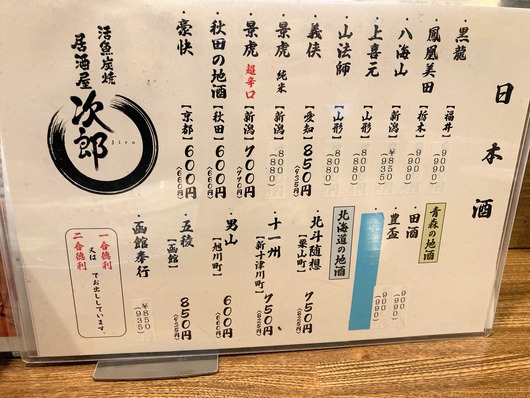 日本酒
・黒龍【福井】900円(990)
・鳳凰美田【栃木】900円(990)
・八海山【新潟】¥850(935)
・上喜元【山形】800円(880)
・山法師【山形】800円(880)
・義侠【愛知】850円(935円)
・景虎 純米【新潟】800円(880)
・景虎 超辛口【新潟】700円(770円)
・秋田の地酒【秋田】600円(660円)
・豪快【京都】600円(660円)
青森の地酒
・田酒 900円(990)
・豊盃 900円(990)
北海道の地酒
・北斗随想【栗山町】750円(825円)
・十一州【新十津川町】750円(825円)
・男山【旭川町】600円
・五稜【函館】850円(935円)
・函館奉行 ¥850(935)
一合徳利
又は
二合徳利
でお出ししています。
活魚炭焼
居酒屋
次郎
Jiro